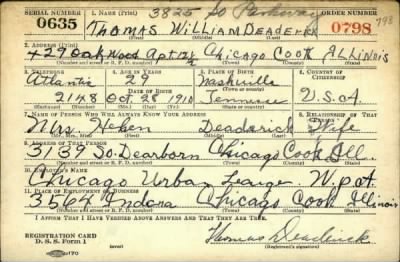 SERIAL NUMBER 1. NAME (Print) 3825 So Parkway ORDER NUMBER
0635 Thomas William Deaderick 0798 798
(First) (Middle) (Last)
2. ADDRESS (Print)
429 Oakwood Apt 12 Chicago Cook Illinois
(Number and street or R. F. D. number) (Town) (County) (State)
3. TELEPHONE 4. AGE IN YEARS 5. PLACE OF BIRTH 6. COUNTRY OF
Atlantic 29 Nashville
DATE OF BIRTH (Town or county)
2148 Oct 28 1910 Tennessee U.S.A.
(Mo.) (Day) (Yr.) (State or country)
7. NAME OF PERSON WHO WILL ALWAYS KNOW YOUR ADDRESS 8. RELATIONSHIP OF THAT
Mrs. Helen Deaderick Wife
(Mr., Mrs., Miss) (First) (Middle) (Last)
9. ADDRESS OF THAT PERSON
So. Dearborn Chicago Cook Ill.
(Number and street or R. F. D. number) (Town) (County) (State)
10. EMPLOYER'S NAME
Chicago Urban League W.P.A.
11. PLACE OF EMPLOYMENT OR BUSINESS
3564 Indiana Chicago Cook Illinois
(Number and street or R. F. D. number) (Town) (County) (State)
I AFFIRM THAT I HAVE VERIFIED ABOVE ANSWERS AND THAT THEY ARE TRUE.
REGISTRATION CARD
D. S. S. Form 1 (over) Thomas Deaderick
(Registrant's signature)